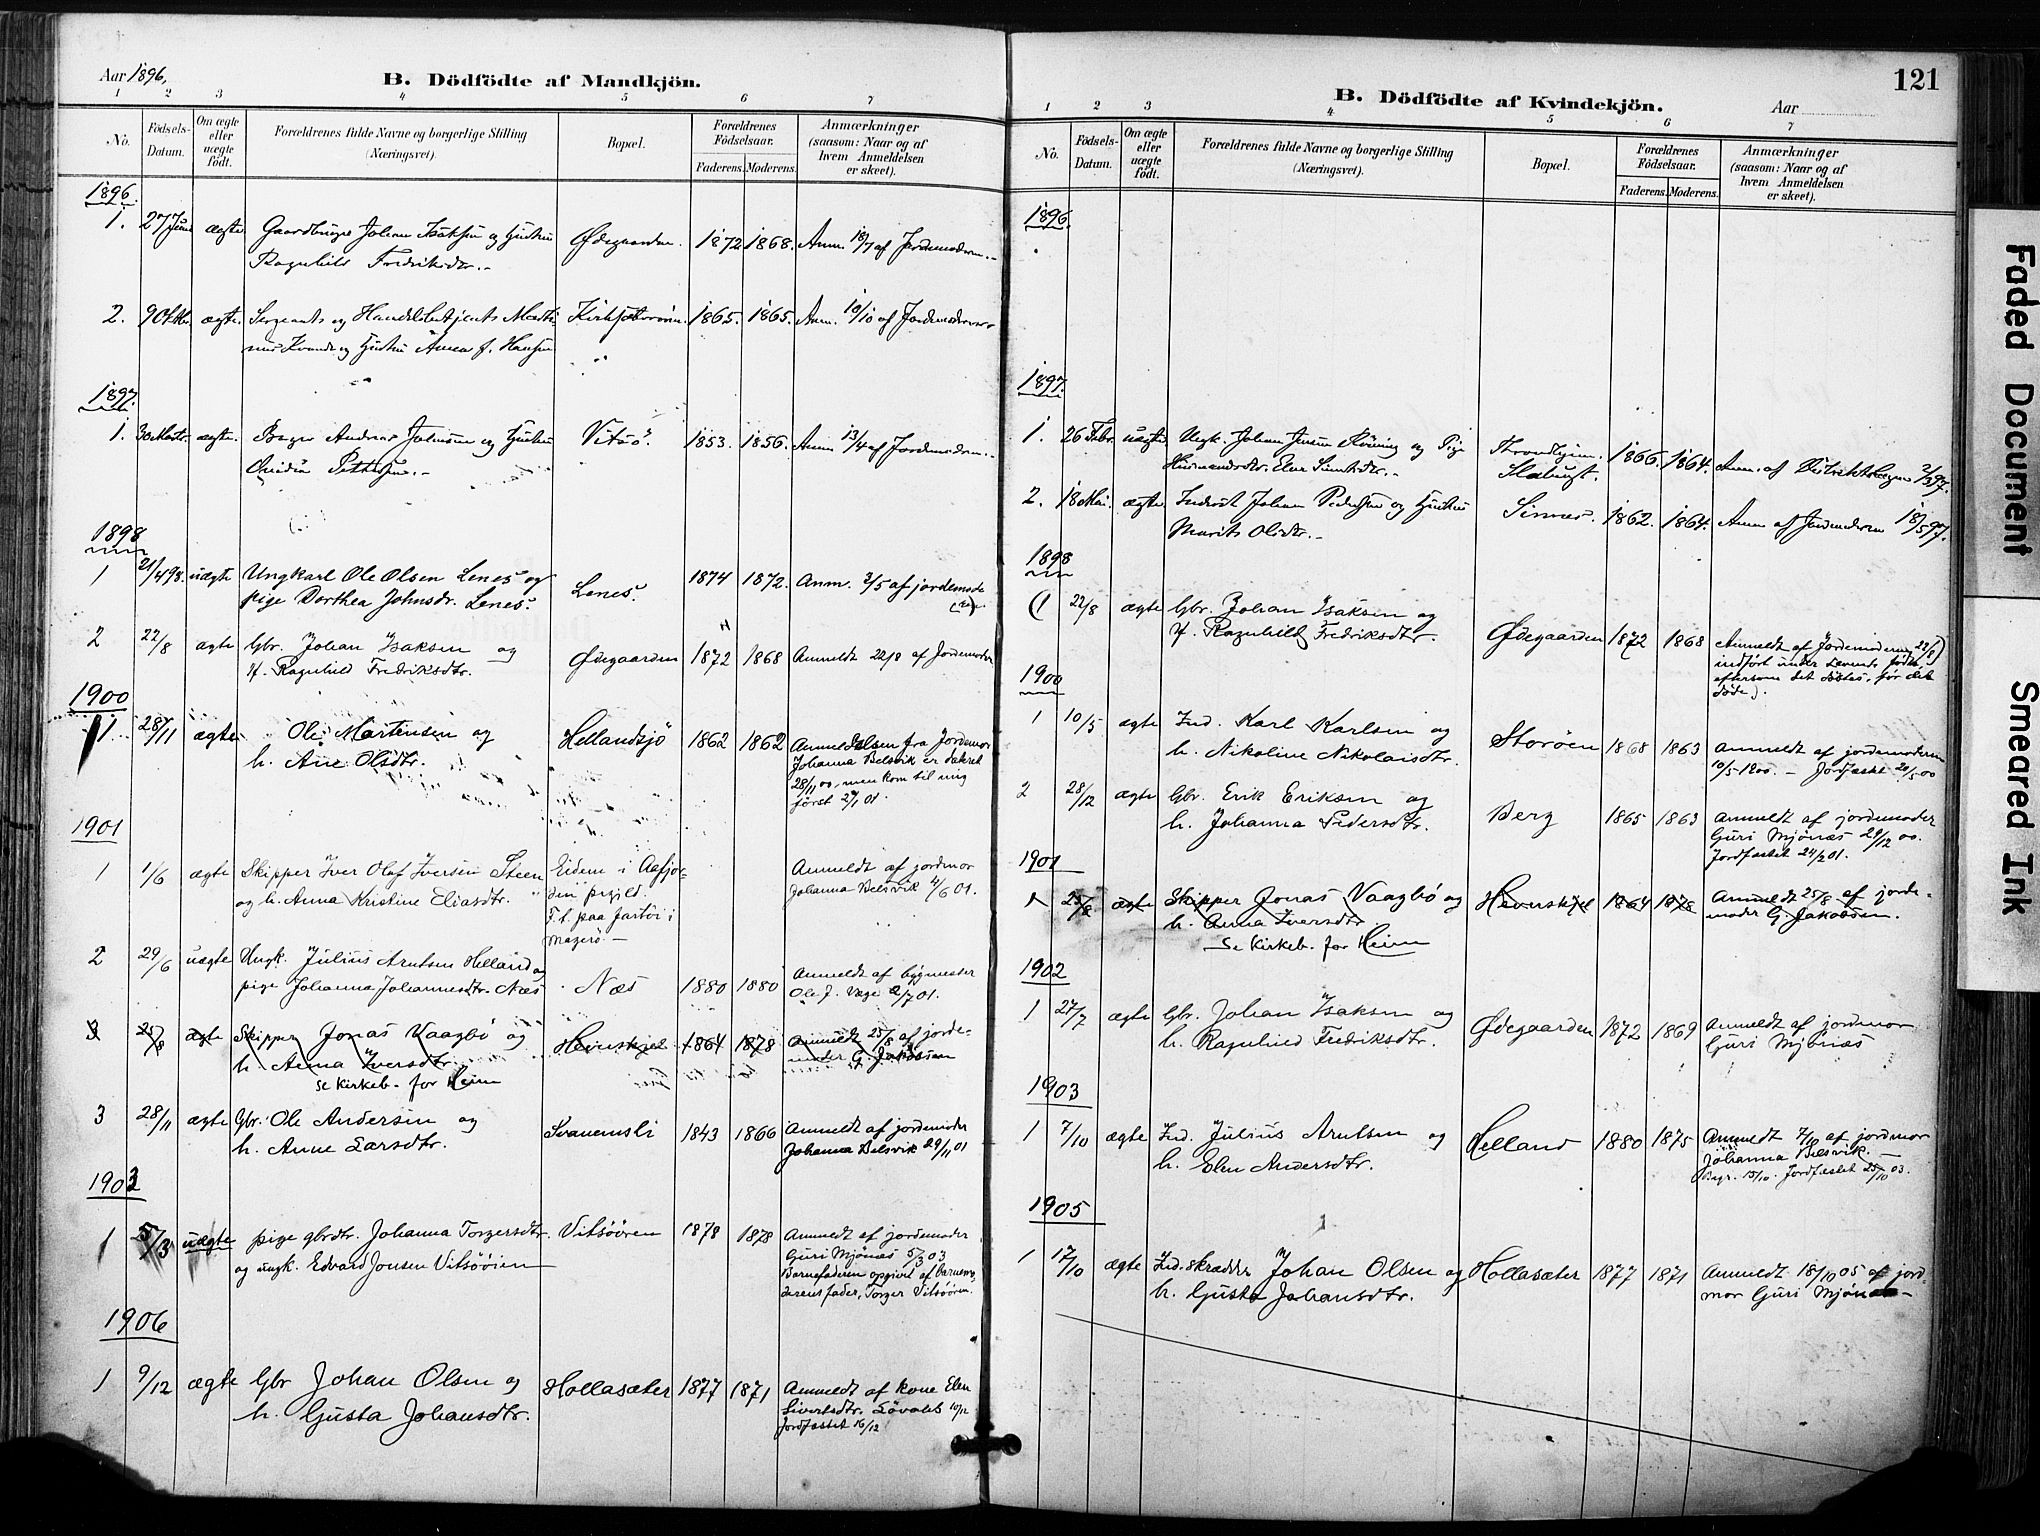 Aar 1896.
B. Dödfödte af Mandkjön.
1 2 3 4 5 6 7
No.
Födsels-Datum.
Om ægte eller uægte født.
Forældrenes fulde Navne og borgerlige Stilling (Næringsvei).
Bopæl.
Forældrenes Födselsaar.
Faderens. Moderens.
Anmærkninger (saasom: Naar og af hvem Anmeldelsen er skeet).
1896.
1. 27 Juni ægte Gaardbruger Johan Isaksen og Hustru Ødegaarden. 1872 1868. Anm. 18/7 af Jordemoderen.
Ragnhild Fredriksdtr.
2. 9 Oktbr. ægte. Sergeant og Handelsbetjent 1865. 1865. Anm. 10/10 af Jordemoderen
og Hustru Anna f. Hansen
1897.
1. 30 ægte. Andreas Johnsen og Hustru Vitsö. 1853. 1856. Anm. 13/4 af Jordemoderen.
1898
1 21/4 98. uægte Ungkarl Ole Olsen Lenes og Lenes. 1874 1872. Anm. 3/5 af jordemode
pige Dorthea Johnsdr. Lenes. (ren.
2 22/8 ægte Gbr. Johan Isaksen og Ødegaarden 1872 1868 Anmeldt 22/8 af Jordemoder
H. Ragnhild Fredriksdtr.
1900
1 28/11 ægte Ole Mortensen og Hellandsjö 1862 1862 Anmeldelsen fra Jordemor
h. Ane Olsdtr. Johanna Belsvik er dateret
28/11 00, men kom til mig
först 2/1 01.
1901
1 1/6 ægte Skipper Iver Olaf Iversen Steen Eidem i Aafjor- Anmeldt af jordmor
og h. Anna Kristine Eliasdtr. den prgjld. Johanna Belsvik 4/6 01.
F. t. paa Jartöi i
Magerö.
2 29/6 uægte Ungk. Julius Arntsen Helland og Næs 1880 1880 Anmeldt af bygmester
pige Johanna Johannesdtr. Næs Ole J. Vage 2/7 01.
3 25/8 ægte Skipper Jonas Vaagbö og Hevnskjel 1864 1878 Anmeldt 25/8 af jorde-
h. Anna Iversdtr. moder G. Jakobsen
se Kirkeb. for Heim
3 28/11 ægte Gbr. Ole Andersen og Svanemsli 1843 1866 Anmeldt af jordemoder
h. Anne Larsdtr. Johanna Belsvik 29/11 01
1903
1 5/3 uægte pige gbrdtr. Johanna Torgersdtr. Vitsöören 1878 1878 Anmeldt af jordemoder
og ungk. Edvard Jonsen Vitsöören Guri Mjönæs 5/3 03
Barnefaderen opgivet af barnemo-
derens fader, Torger Vitsöören.
1906
1 9/12 ægte Gbr Johan Olsen og Hollasæter 1877 1871 Anmeldt af kone Elen
h. Gusta Johansdtr. Sivertsdtr. 10/12
Jordfæstet 16/12
121
B. Dödfödte af Kvindekjön.
Aar
1 2 3 4 5 6 7
No.
Födsels-Datum.
Om ægte eller uægte födt.
Forældrenes fulde Navne og borgerlige Stilling (Næringsvei).
Bopæl.
Forældrenes Födselsaar.
Faderens. Moderens.
Anmærkninger (saasom: Naar og af hvem Anmeldelsen er skeet).
1896.
1897.
1. 26 Febr. uægte Ungk. Johan Jensen og Pige Trondhjem. 1866. 1864. Anm. af 2/3 97.
Husmandsdtr.
2. 18 Mai. ægte Inderst Johan Pedersen og Hustru Sinnes. 1862. 1864. Anm. af Jordemoderen 18/5 97.
Marit Olsdtr.
1898
(1 22/8 ægte Gbr. Johan Isaksen og Ødegaarden 1872 1868 Anmeldt af Jordemoderen 22/8)
H. Ragnhild Fredriksdtr. indfört under Levende födte,
eftersom det döbtes, för det
döde).
1900
1 10/5 ægte Ind. Karl Karlsen og Storöen 1868 1863 Anmeldt af jordemoderen
h. Nikoline Nikolaisdtr. 10/5 1900. – Jordfæstet 20/5 00
2 28/12 ægte Gbr. Erik Eriksen og Berg 1865 1863 Anmeldt af jordemoder
h. Johanna Pedersdtr. Guri Mjönæs 29/12 00.
Jordfæstet 24/2 01.
1901
1 25/8 ægte Skipper Jonas Vaagbö og Hevnskjel 1864 1878 Anmeldt 25/8 af jorde-
h. Anna Iversdtr. moder G. Jakobsen.
se Kirkeb. for Heim
1902
1 27/7 ægte Gbr. Johan Isaksen og Ødegaarden 1872 1869 Anmeldt af jordmor
h. Ragnhild Fredriksdtr. Guri Mjönæs
1903
1 7/10 ægte Ind. Julius Arntsen og Helland 1880 1875 Anmeldt 7/10 af jordmor
h. Elen Andersdtr. Johanna Belsvik.
Begr. 15/10. Jordfæstet 25/10 03.
1905
1 17/10 ægte Ind. skrædder Johan Olsen og Hollasæter 1877 1871 Anmeldt 18/10 05 af jord
h. Gusta Johansdtr. mor Guri Mjönæs
Faded Document
Smeared Ink